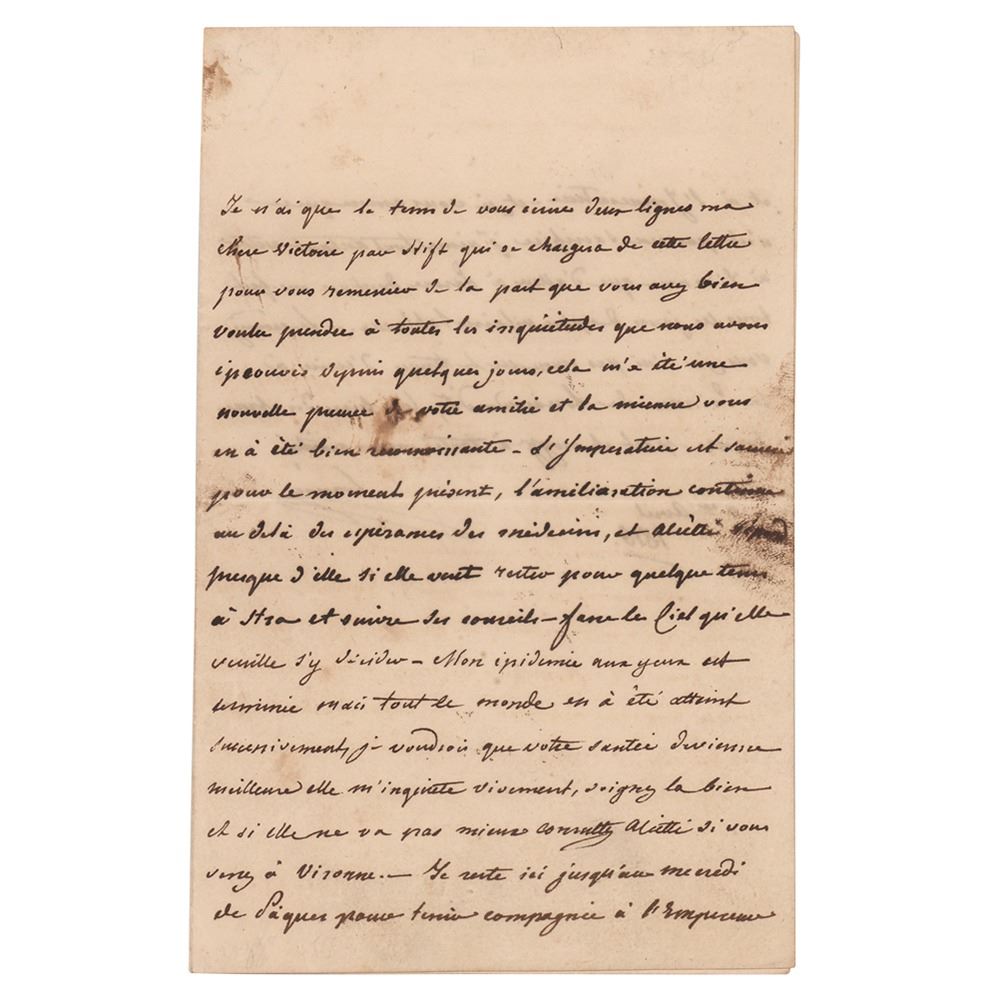 Je n'ai que le tems de vous écrire deux lignes ma
chere Victoire par Stift qui se chargera de cette lettre
pour vous remercier de la part que vous avez bien
voulu prendre à toutes les inquiétudes que nous avons
éprouvés depuis quelques jours, cela m'a été une
nouvelle preuve de votre amitié et la mienne vous
en à été bien reconnoissante – L'Imperatrice est sauvée
pour le moment présent, l'amélioration continue
au delà des espérances des médecins, et Aliètti répond
presque d'elle si elle veut rester pour quelque tems
à Stra et suivre ses conseils – fasse le Ciel qu'elle
veuille s'y décider – Mon épidémie aux yeux est
terminée mais tout le monde en à été atteint
successivement, je voudrois que votre santée devienne
meilleure elle m'inquiéte vivement, soignez la bien
et si elle ne va pas mieux consultez Aliètti si vous
venez à Véronne. – Je reste ici jusqu'au mecredi
de Pâques pour tenir compagnie à l'Empereur